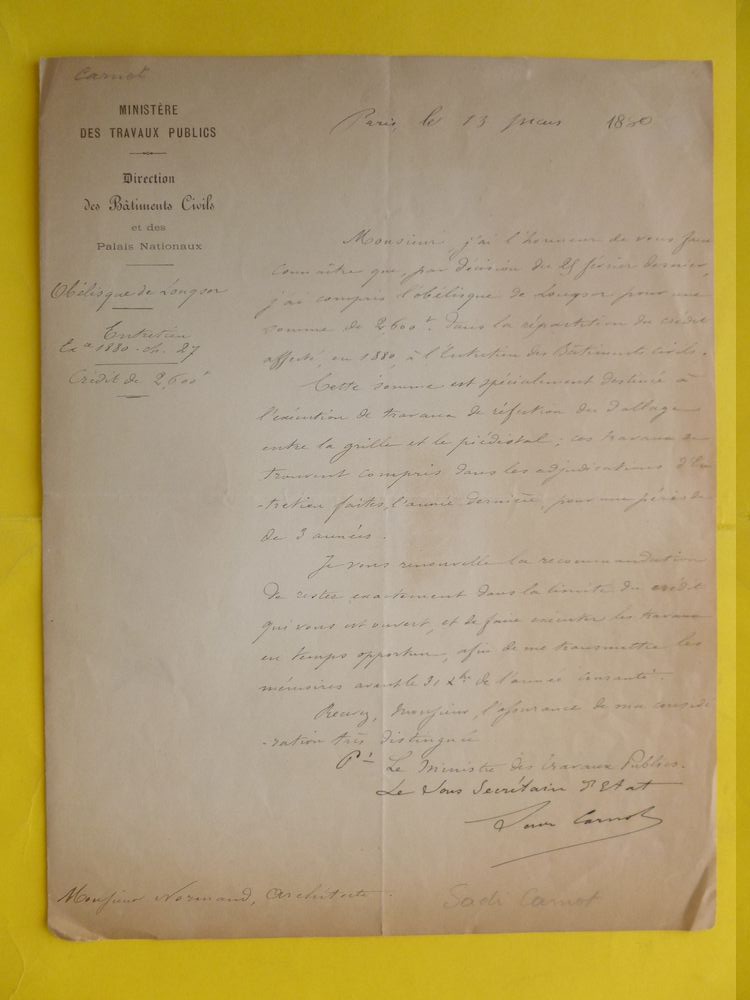 Carnot
MINISTÈRE
DES TRAVAUX PUBLICS
Direction
des Bâtiments Civils
et des
Palais Nationaux
Obélisque de Louqsor
Entretien
Exce 1880 - ch. 27
Crédit de 2,600f
Paris, le 13 mars 1880
Monsieur, j'ai l'honneur de vous faire
connaître que, par décision du 25 février dernier,
j'ai compris l'obélisque de Louqsor pour une
somme de 2600f. dans la répartition du crédit
affecté, en 1880, à l'Entretien des Bâtiments civils.
Cette somme est spécialement destinée à
l'exécution de travaux de réfection du dallage
entre la grille et le piédestal ; ces travaux se
trouvent compris dans les adjudications d'En
-tretien faites, l'année dernière, pour une période
de 3 années.
Je vous renouvelle la recommandation
de rester exactement dans la limite du crédit
qui vous est ouvert, et de faire exécuter les travaux
en temps opportun, afin de me transmettre les
mémoires avant le 31 Xbre de l'année courante.
Recevez, Monsieur, l'assurance de ma considé
-ration très distinguée
Pr Le Ministre des travaux Publics.
Le Sous Secrétaire d'Etat
Carnot
Monsieur Normand, Architecte.
Sadi Carnot